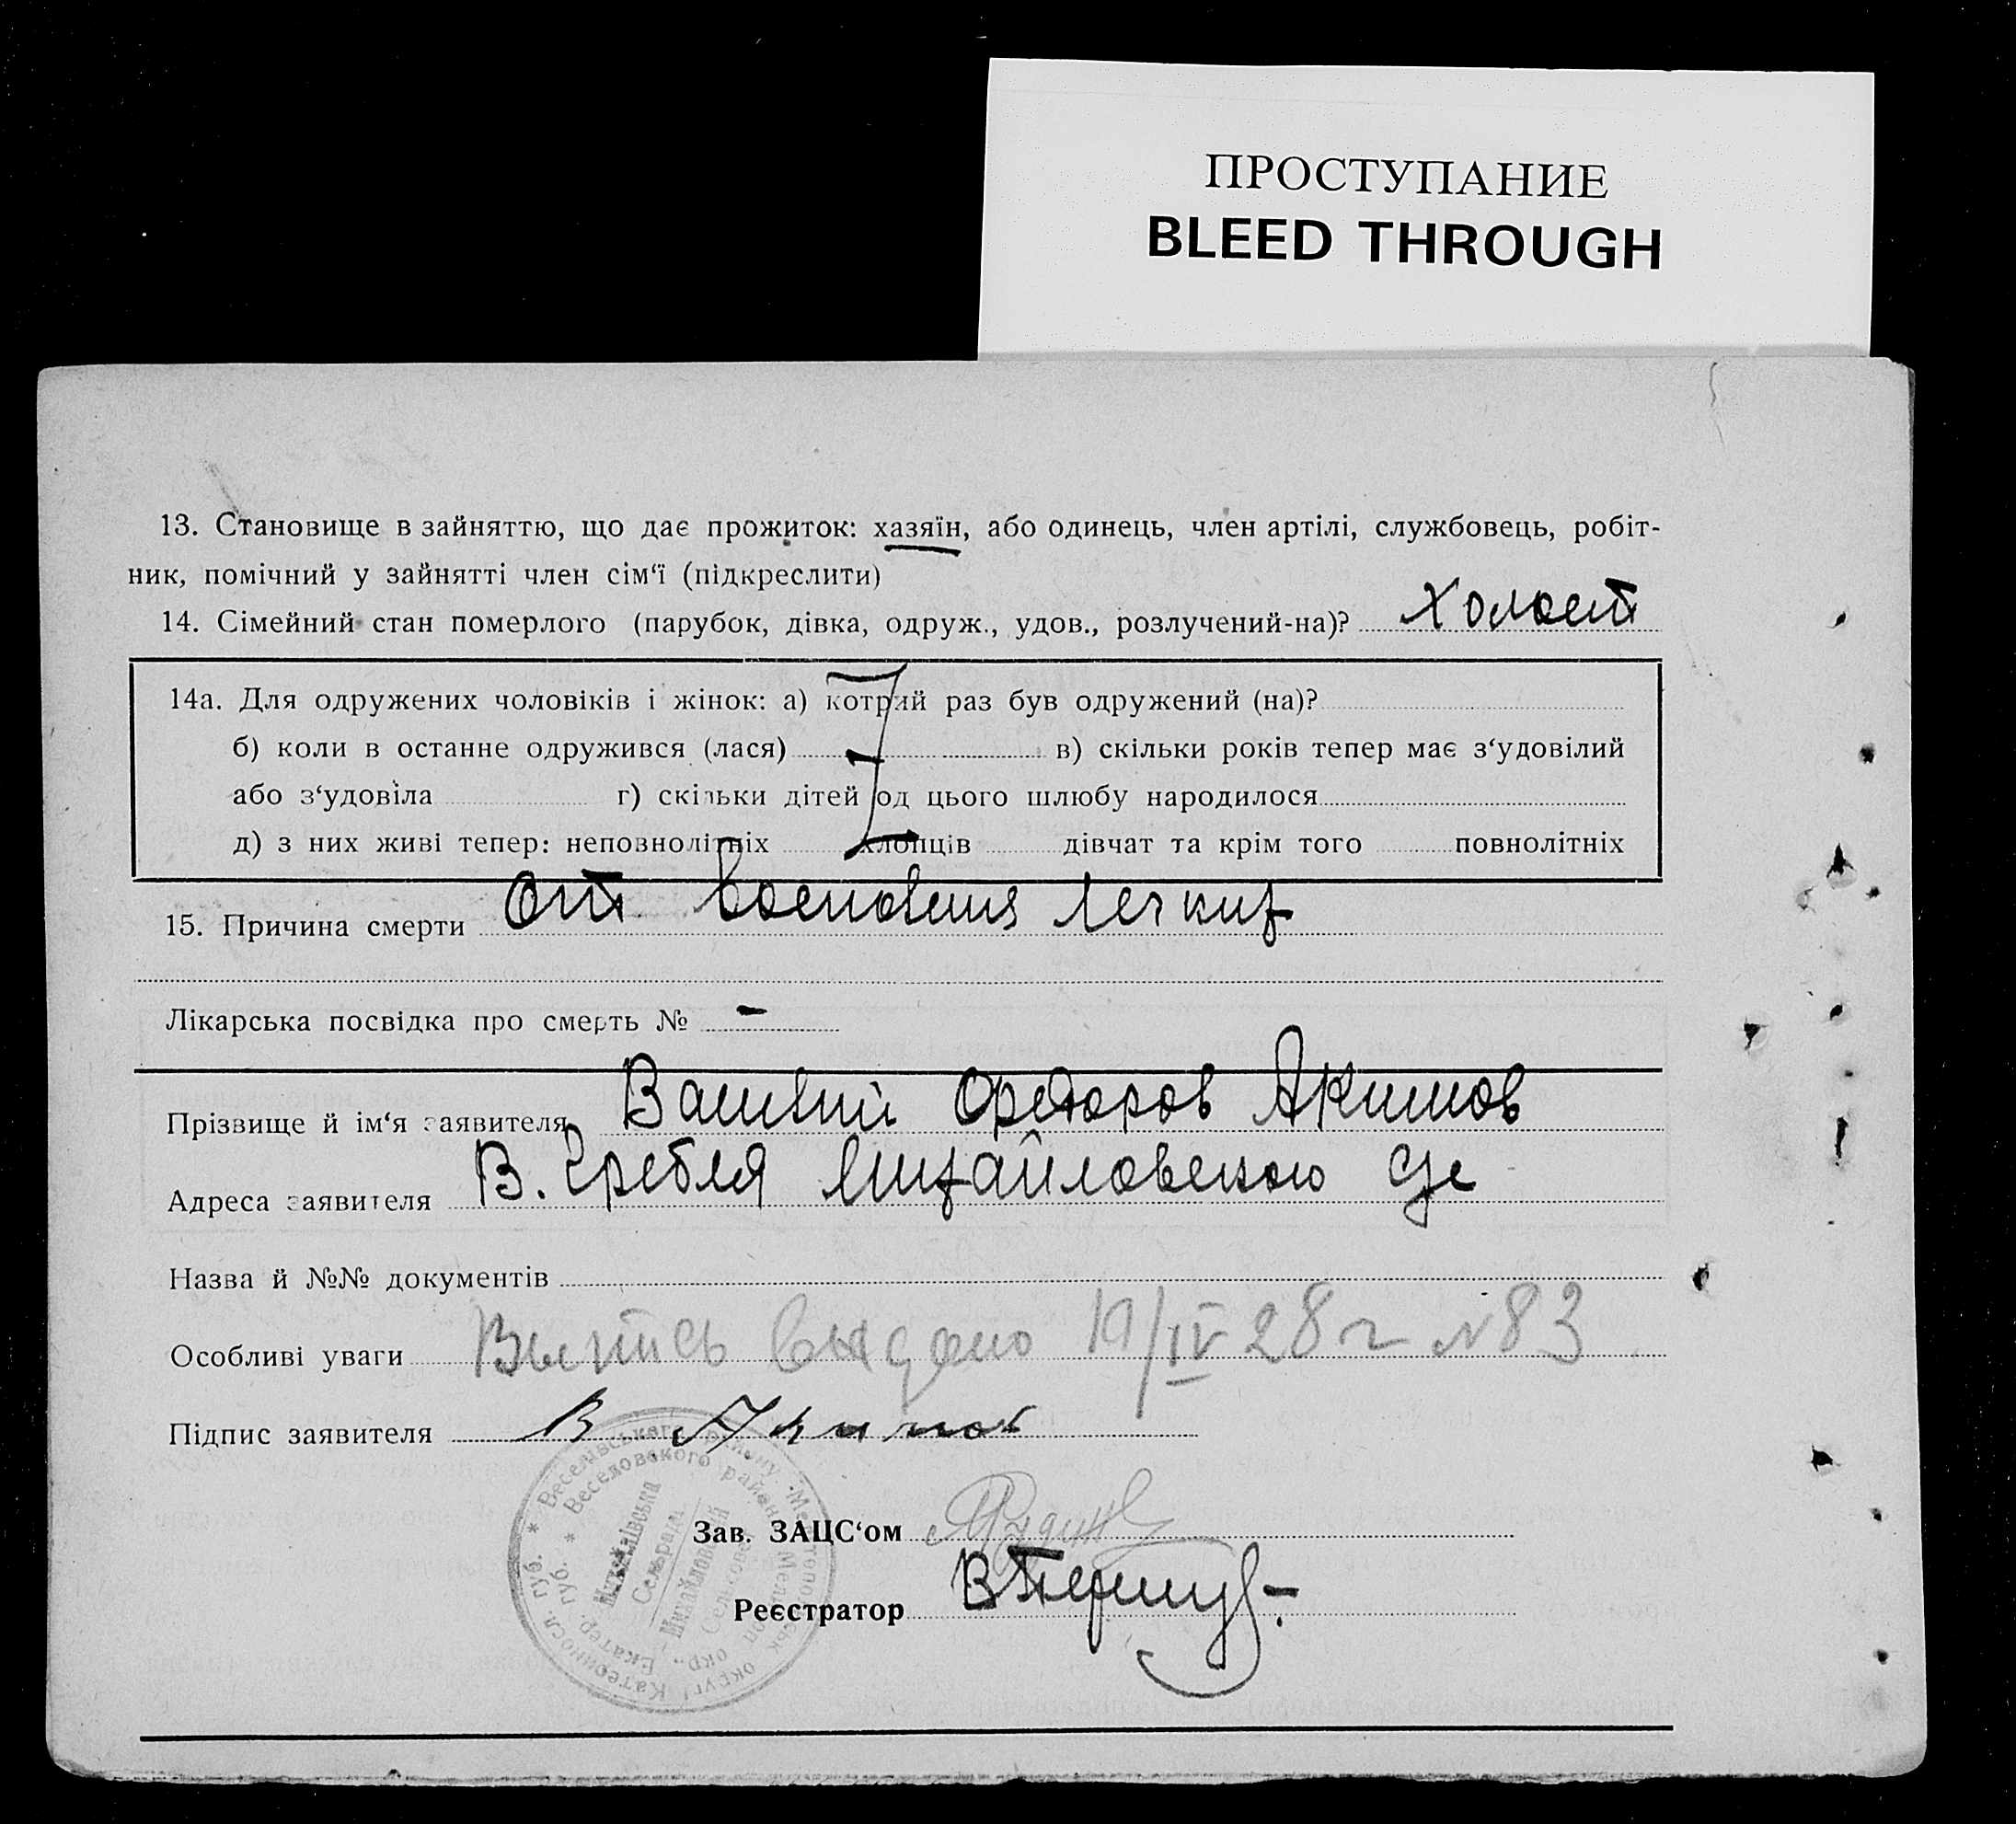 ПРОСТУПАНИЕ
BLEED THROUGH
13. Становище в зайняттю, що дає прожиток: хазяїн, або одинець, член артілі, службовець, робіт-
ник, помічний у зайнятті член сім‘ї (підкреслити)
14. Сімейний стан померлого (парубок, дівка, одруж., удов., розлучений-на)? Холост
14а. Для одружених чоловіків і жінок: а) котрий раз був одружений (на)?
б) коли в останне одружився (лася) в) скільки років тепер має з‘удовілий
або з‘удовіла г) скільки дітей од цього шлюбу народилося
д) з них живі тепер: неповнолітніх хлопців дівчат та крім того повнолітніх
15. Причина смерти От воспаления легких
Лікарська посвідка про смерть № -
Прізвище й ім‘я заявителя Василий Федоров Акимов
Адреса заявителя В. Гребля Михайловского
Назва й №№ документів
Особливі уваги Выпись выдано 19/IV 28 г №83
Підпис заявителя В Акимов
* Веселівського району Мелітопольськ округі Катериносл губ.
* Веселовского района Мелитоп окр. Екатер. губ.
Михайлівська
Сельрада
Михайловский
Сельсовет
Зав. ЗАЦС‘ом
Реєстратор